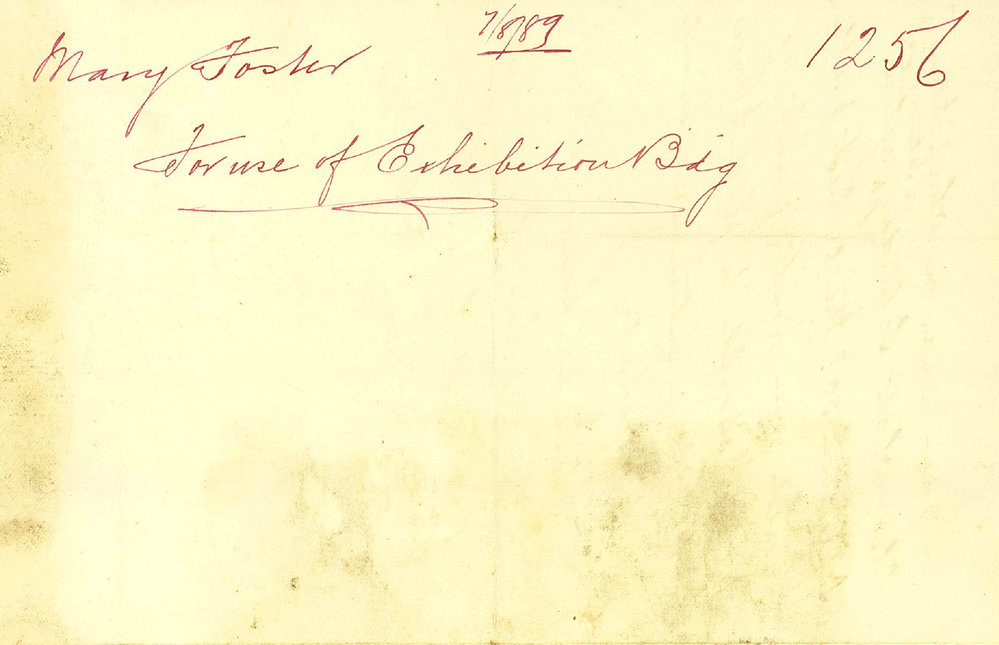 7/8/89
Mary Foster 1256
For use of Exhibition Bdg